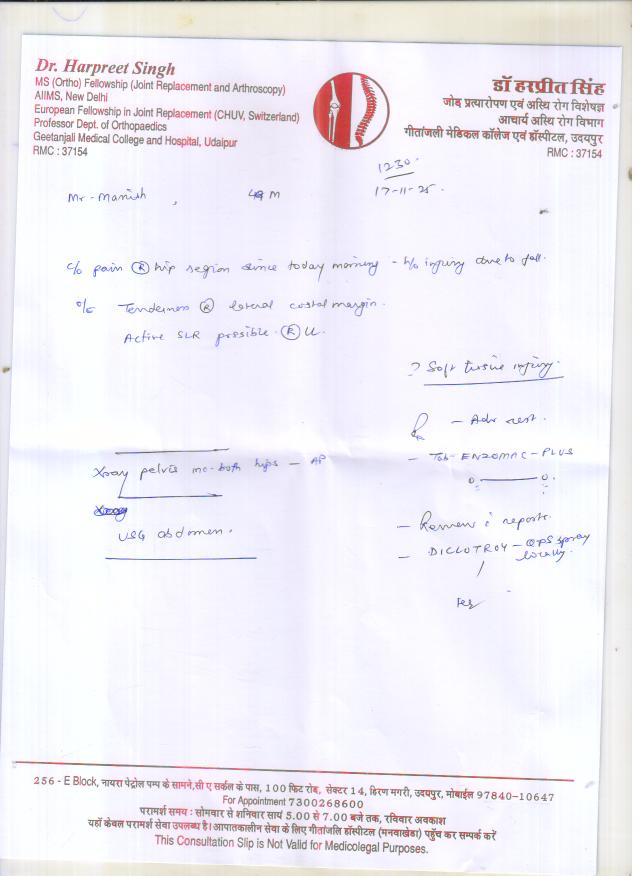 Dr. Harpreet Singh
MS (Ortho) Fellowship (Joint Replacement and Arthroscopy)
AIIMS, New Delhi
European Fellowship in Joint Replacement (CHUV, Switzerland)
Professor Dept. of Orthopaedics
Geetanjali Medical College and Hospital, Udaipur
RMC : 37154
डॉ हरप्रीत सिंह
जोड़ प्रत्यारोपण एवं अस्थि रोग विशेषज्ञ
आचार्य अस्थि रोग विभाग
गीतांजली मेडिकल कॉलेज एवं हॉस्पीटल, उदयपुर
RMC : 37154
1230
17-11-25.
Mr-Manish , M
c/o pain (R) hip region since today morning - h/o injury due to fall.
o/e Tenderness (R) lateral costal margin.
Active SLR possible. (R)
? Soft tissue injury.
Rx - Adv rest.
- Tab- ENZOMAC-PLUS
0 — 0.
Xray pelvis inc- both hips - AP
USG abdomen.
- Review c̄ reports
- DICLOTROY - QPS spray
locally.
256 - E Block, नायरा पेट्रोल पम्प के सामने,सी ए सर्कल के पास, 100 फिट रोड, सेक्टर 14, हिरण मगरी, उदयपुर, मोबाईल 97840-10647
For Appointment 7300268600
परामर्श समय : सोमवार से शनिवार सायं 5.00 से 7.00 बजे तक, रविवार अवकाश
यहाँ केवल परामर्श सेवा उपलब्ध है। आपातकालीन सेवा के लिए गीतांजलि हॉस्पिटल (मनवाखेडा) पहुँच कर सम्पर्क करें
This Consultation Slip is Not Valid for Medicolegal Purposes.